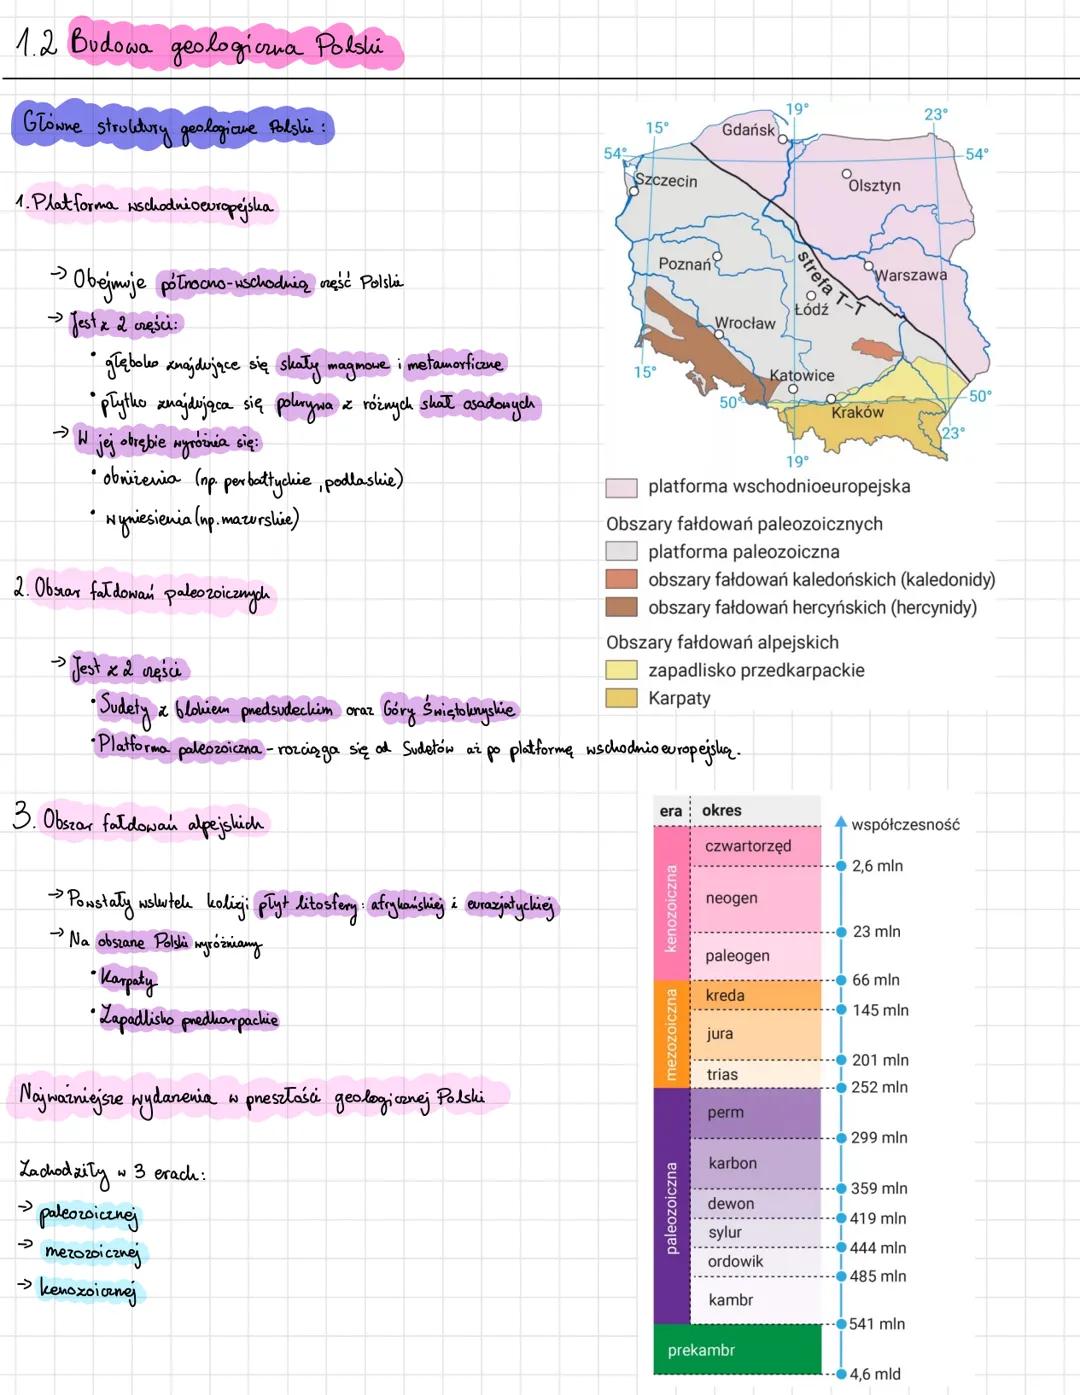 1.2 Budowa geologiczna Polski
Główne struktury geologiczne Polski:
1. Platforma wschodnioeuropejska
→ Obejmuje północno-wschodnią część Polski
→ Jest z 2 części:
• głęboko znajdujące się skały magmowe i metamorficzne
• płytko znajdująca się pokrywa z różnych skał osadowych
→ W jej obrębie wyróżnia się:
• obniżenia (np. perbałtyckie, podlaskie)
• wyniesienia (np. mazurskie)
2. Obszar fałdowań paleozoicznych
→ Jest z 2 części
• Sudety z blokiem przedsudeckim oraz Góry Świętokrzyskie
• Platforma paleozoiczna - rozciąga się od Sudetów aż po platformę wschodnioeuropejską.
3. Obszar fałdowań alpejskich
→ Powstały wskutek kolizji płyt litosfery: afrykańskiej i eurazjatyckiej
→ Na obszarze Polski wyróżniamy
• Karpaty
• Zapadlisko przedkarpackie
Najważniejsze wydarzenia w przeszłości geologicznej Polski
Zachodziły w 3 erach:
→ paleozoicznej
→ mezozoicznej
→ kenozoicznej
19°
23°
15°
Gdańsk
54°
54°
Szczecin
Olsztyn
Poznań
Warszawa
strefa T-T
Łódź
Wrocław
15°
Katowice
50°
50°
Kraków
23°
19°
platforma wschodnioeuropejska
Obszary fałdowań paleozoicznych
platforma paleozoiczna
obszary fałdowań kaledońskich (kaledonidy)
obszary fałdowań hercyńskich (hercynidy)
Obszary fałdowań alpejskich
zapadlisko przedkarpackie
Karpaty
era okres
współczesność
czwartorzęd
2,6 mln
kenozoiczna
neogen
23 mln
paleogen
66 mln
mezozoiczna
kreda
145 mln
jura
201 mln
trias
252 mln
paleozoiczna
perm
299 mln
karbon
359 mln
dewon
419 mln
sylur
444 mln
ordowik
485 mln
kambr
541 mln
prekambr
4,6 mld